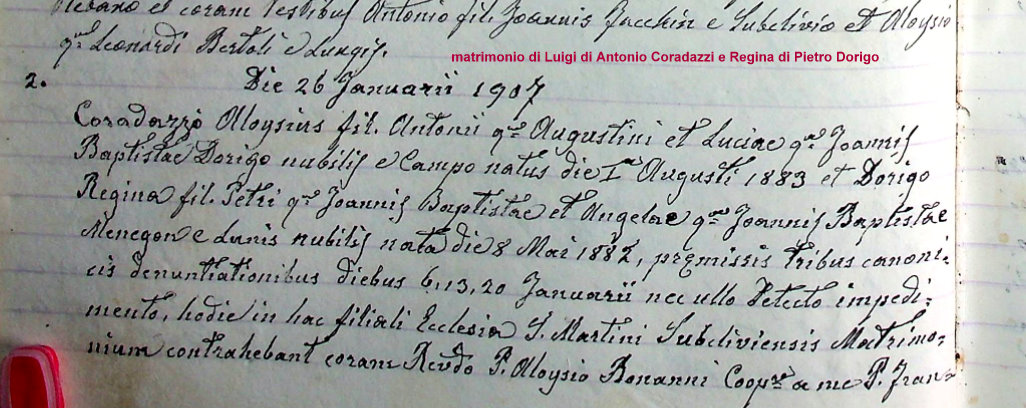 Plebano et coram testibus Antonio fil. Joannis Facchin e Subclivio et Aloysio
qm Leonardi Bertoli e Lungis.
matrimonio di Luigi di Antonio Coradazzi e Regina di Pietro Dorigo
2. Die 26 Januarii 1907
Coradazzi Aloysius fil. Antonii qm Augustini et Luciae qm Joannis
Baptistae Dorigo nubilis e Campo natus die I Augusti 1883 et Dorigo
Regina fil. Petri qm Joannis Baptistae et Angelae qm Joannis Baptistae
Menegon e Lunis nubilis nata die 8 Mai 1882, premissis tribus canoni-
cis denuntiationibus diebus 6, 13, 20 Januarii nec ullo detecto impedi-
mento, hodie in hac filiali Ecclesia S. Martini Subcliviensis Matrimo-
nium contrahebant coram Revdo P. Aloysio Bonanni Coopre a me P. Fran-